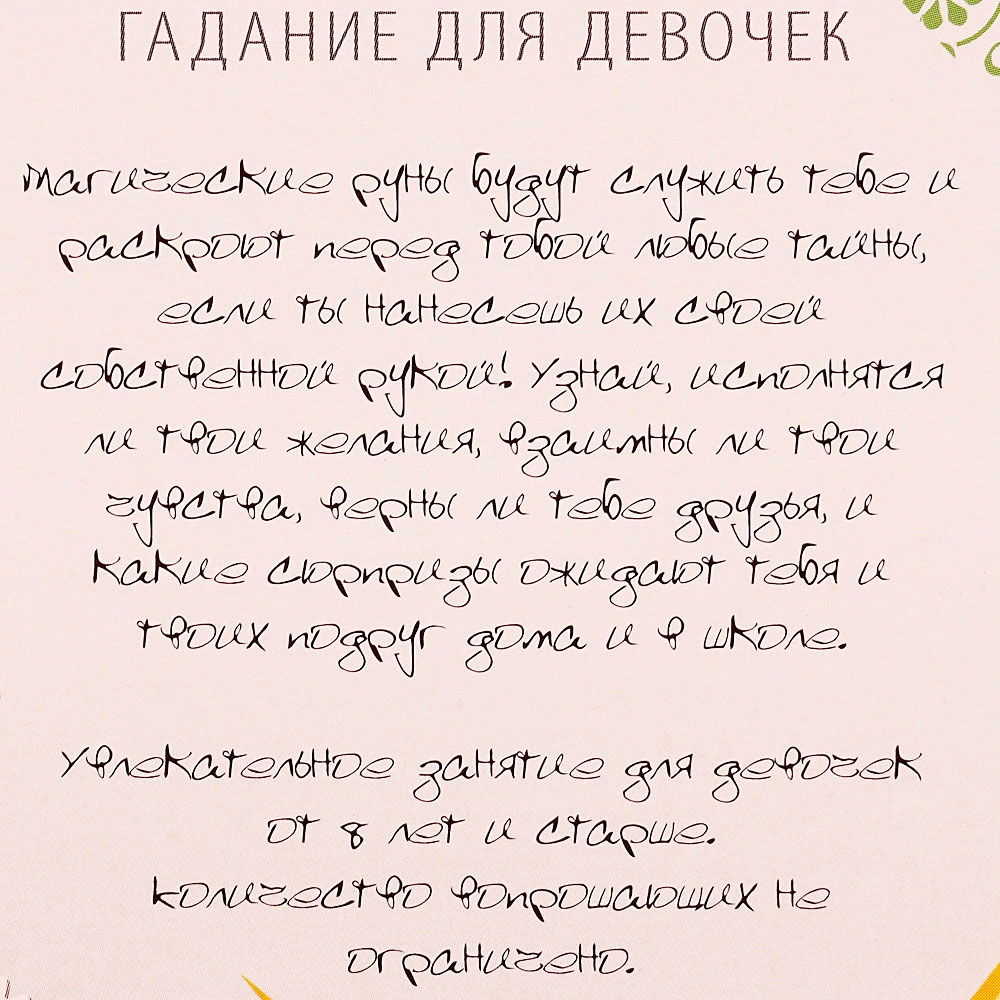 ГАДАНИЕ ДЛЯ ДЕВОЧЕК
Магические руны будут служить тебе и
раскроют перед тобой любые тайны,
если ты нанесешь их своей
собственной рукой! Узнай, исполнятся
ли твои желания, взаимны ли твои
чувства, верны ли тебе друзья, и
какие сюрпризы ожидают тебя и
твоих подруг дома и в школе.
Увлекательное занятие для девочек
от 8 лет и старше.
Количество вопрошающих не
ограничено.